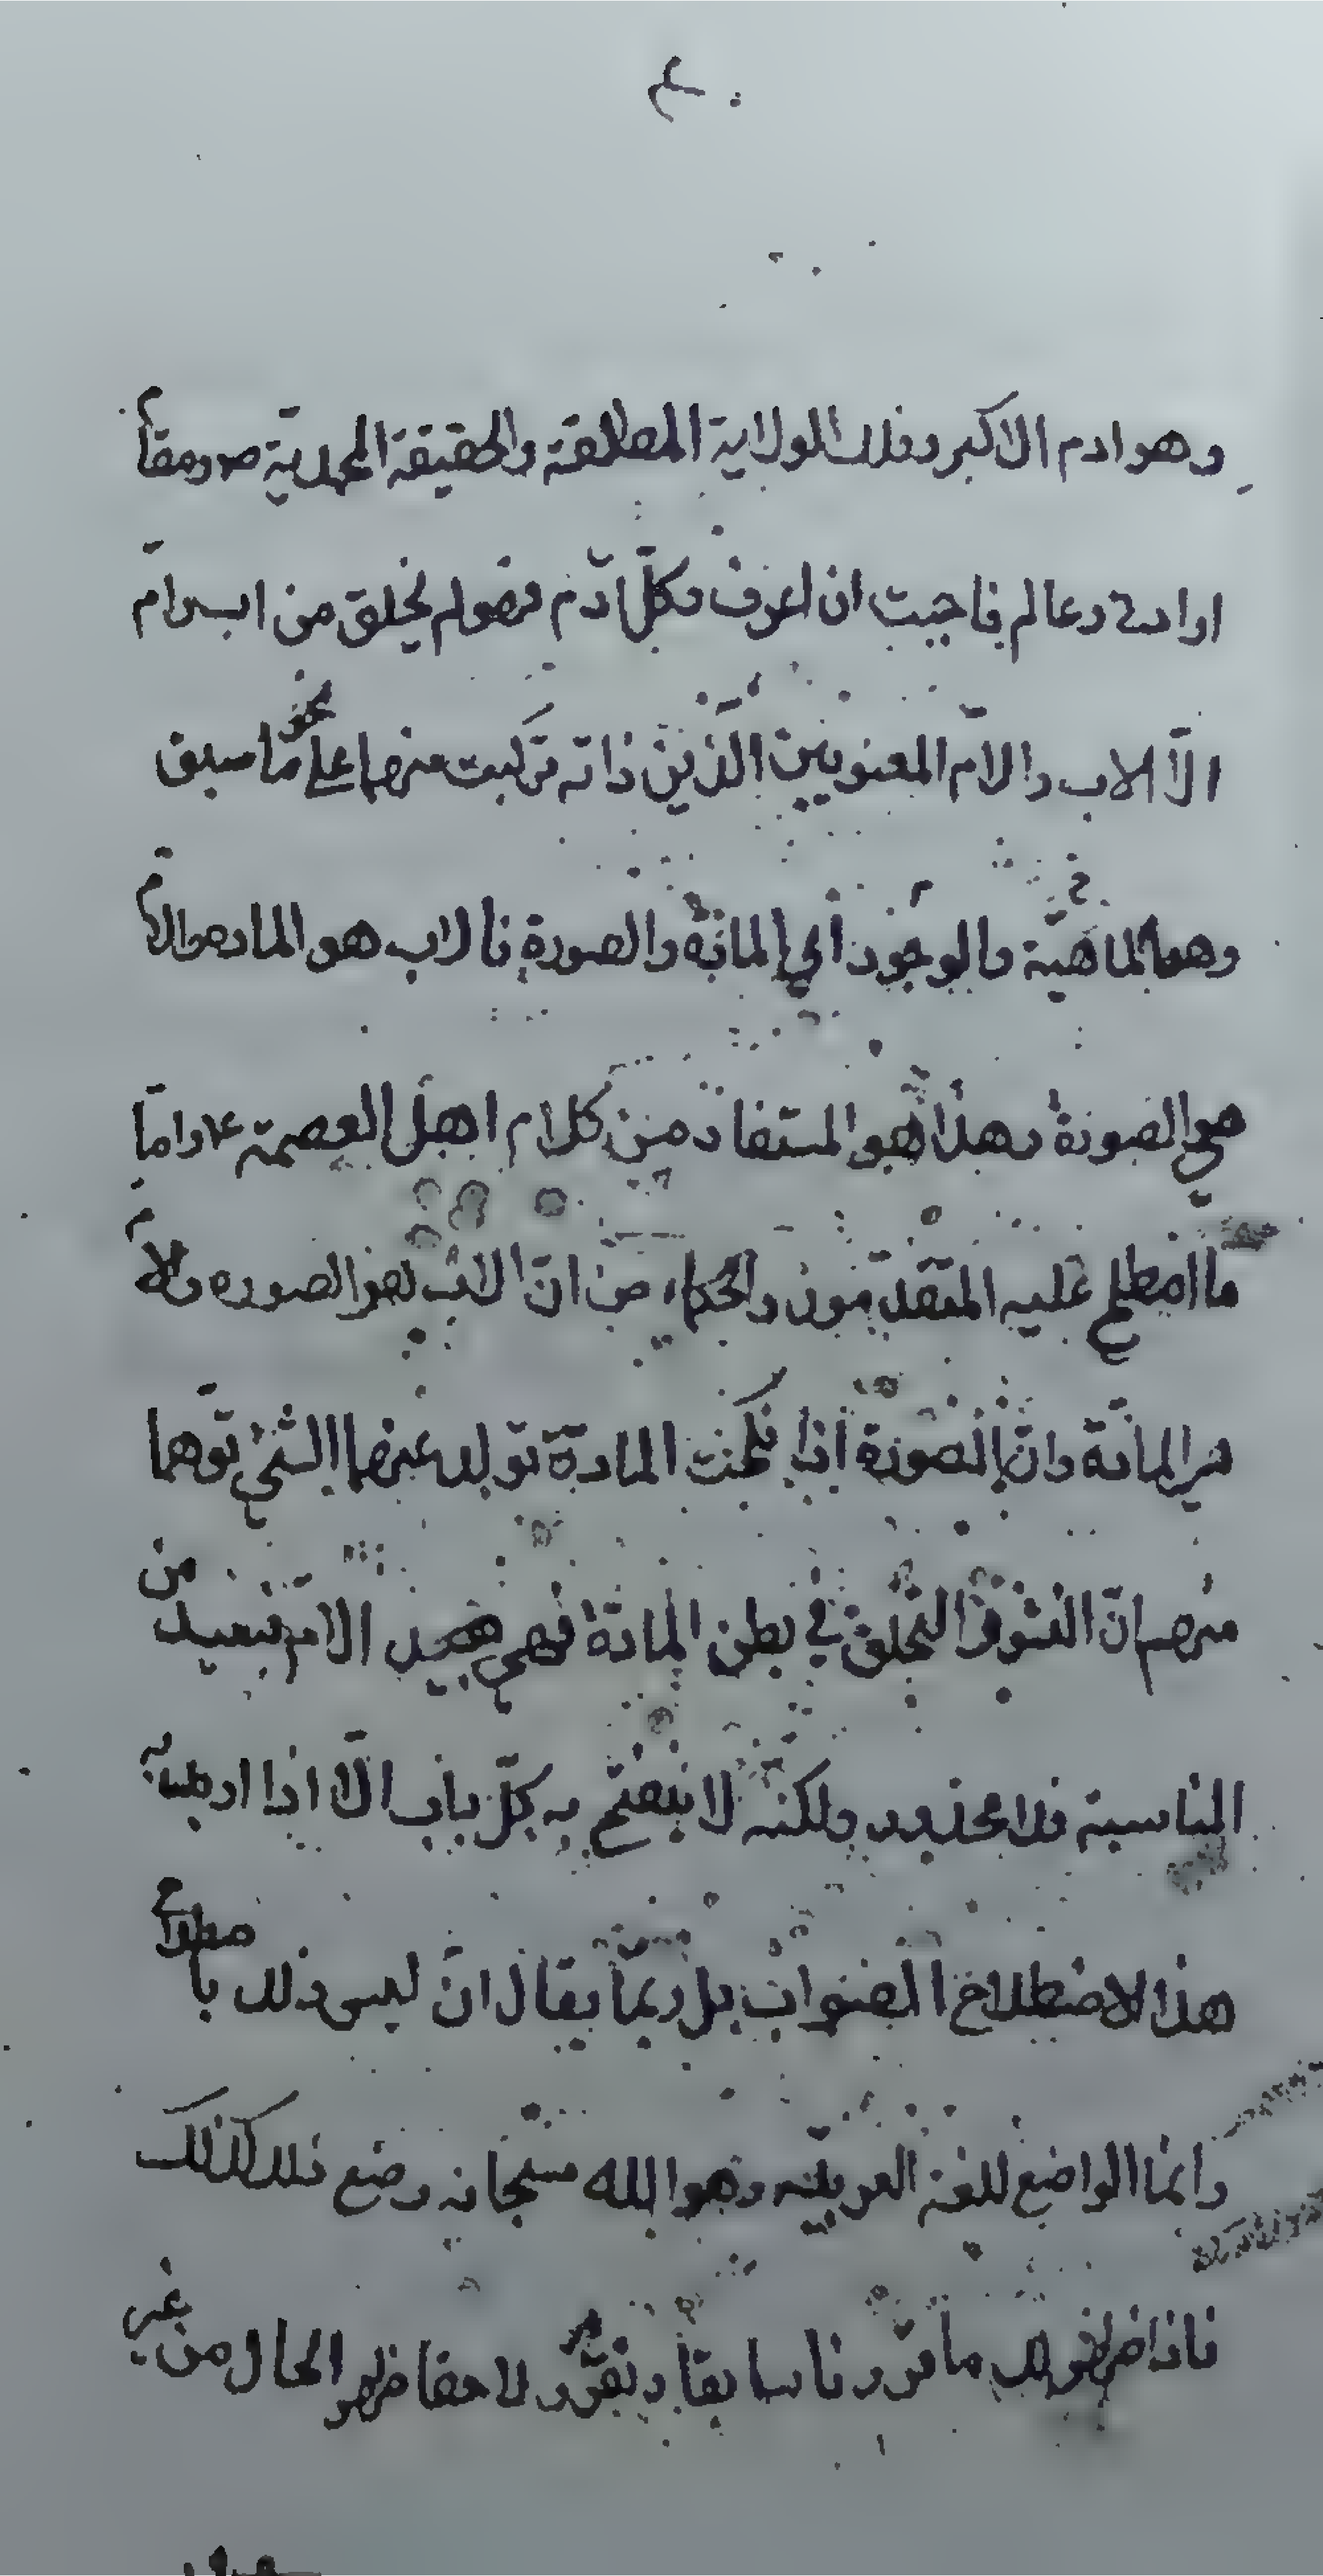 ٤
وهو ادم الاكبر وفلك الولاية المطلقة والحقيقة المحمدية ص ومقام
او ادنى وعالم فاحببت ان اعرف وكلّ ادم فهو لم يخلق من اب وامّ
الّا الاب والامّ المعنويين الذين ذاته تركبت منهما على نحو ما سبق
وهما الماهيّة والوجود أي المادّة والصورة فالاب هو المادة والامّ
هي الصورة وهذا هو المستفاد من كلام اهل العصمة ع واما
ما اصطلح عليه المتقدّمون والحكماء من انّ الاب هو الصوره والامّ
هي المادّة وانّ الصورة اذا نكحت المادّة تولد عنهما الشيء توهما
منهم انّ التخلق في بطن المادة فهي الامّ فبعيد من
المناسبة ولكنه لا ينفتح به كلّ باب الّا اذا اريد به
هذا الاصطلاح الصواب بل ربّما يقال انّ ليس ذلك باصطلاح
وانّما الواضع للغة العربيّة وهو الله سبحانه وضع ذلك كذلك
فاذا ظهر لك ما قررنا سابقا ونقرّر لاحقا ظهر الحال من غير